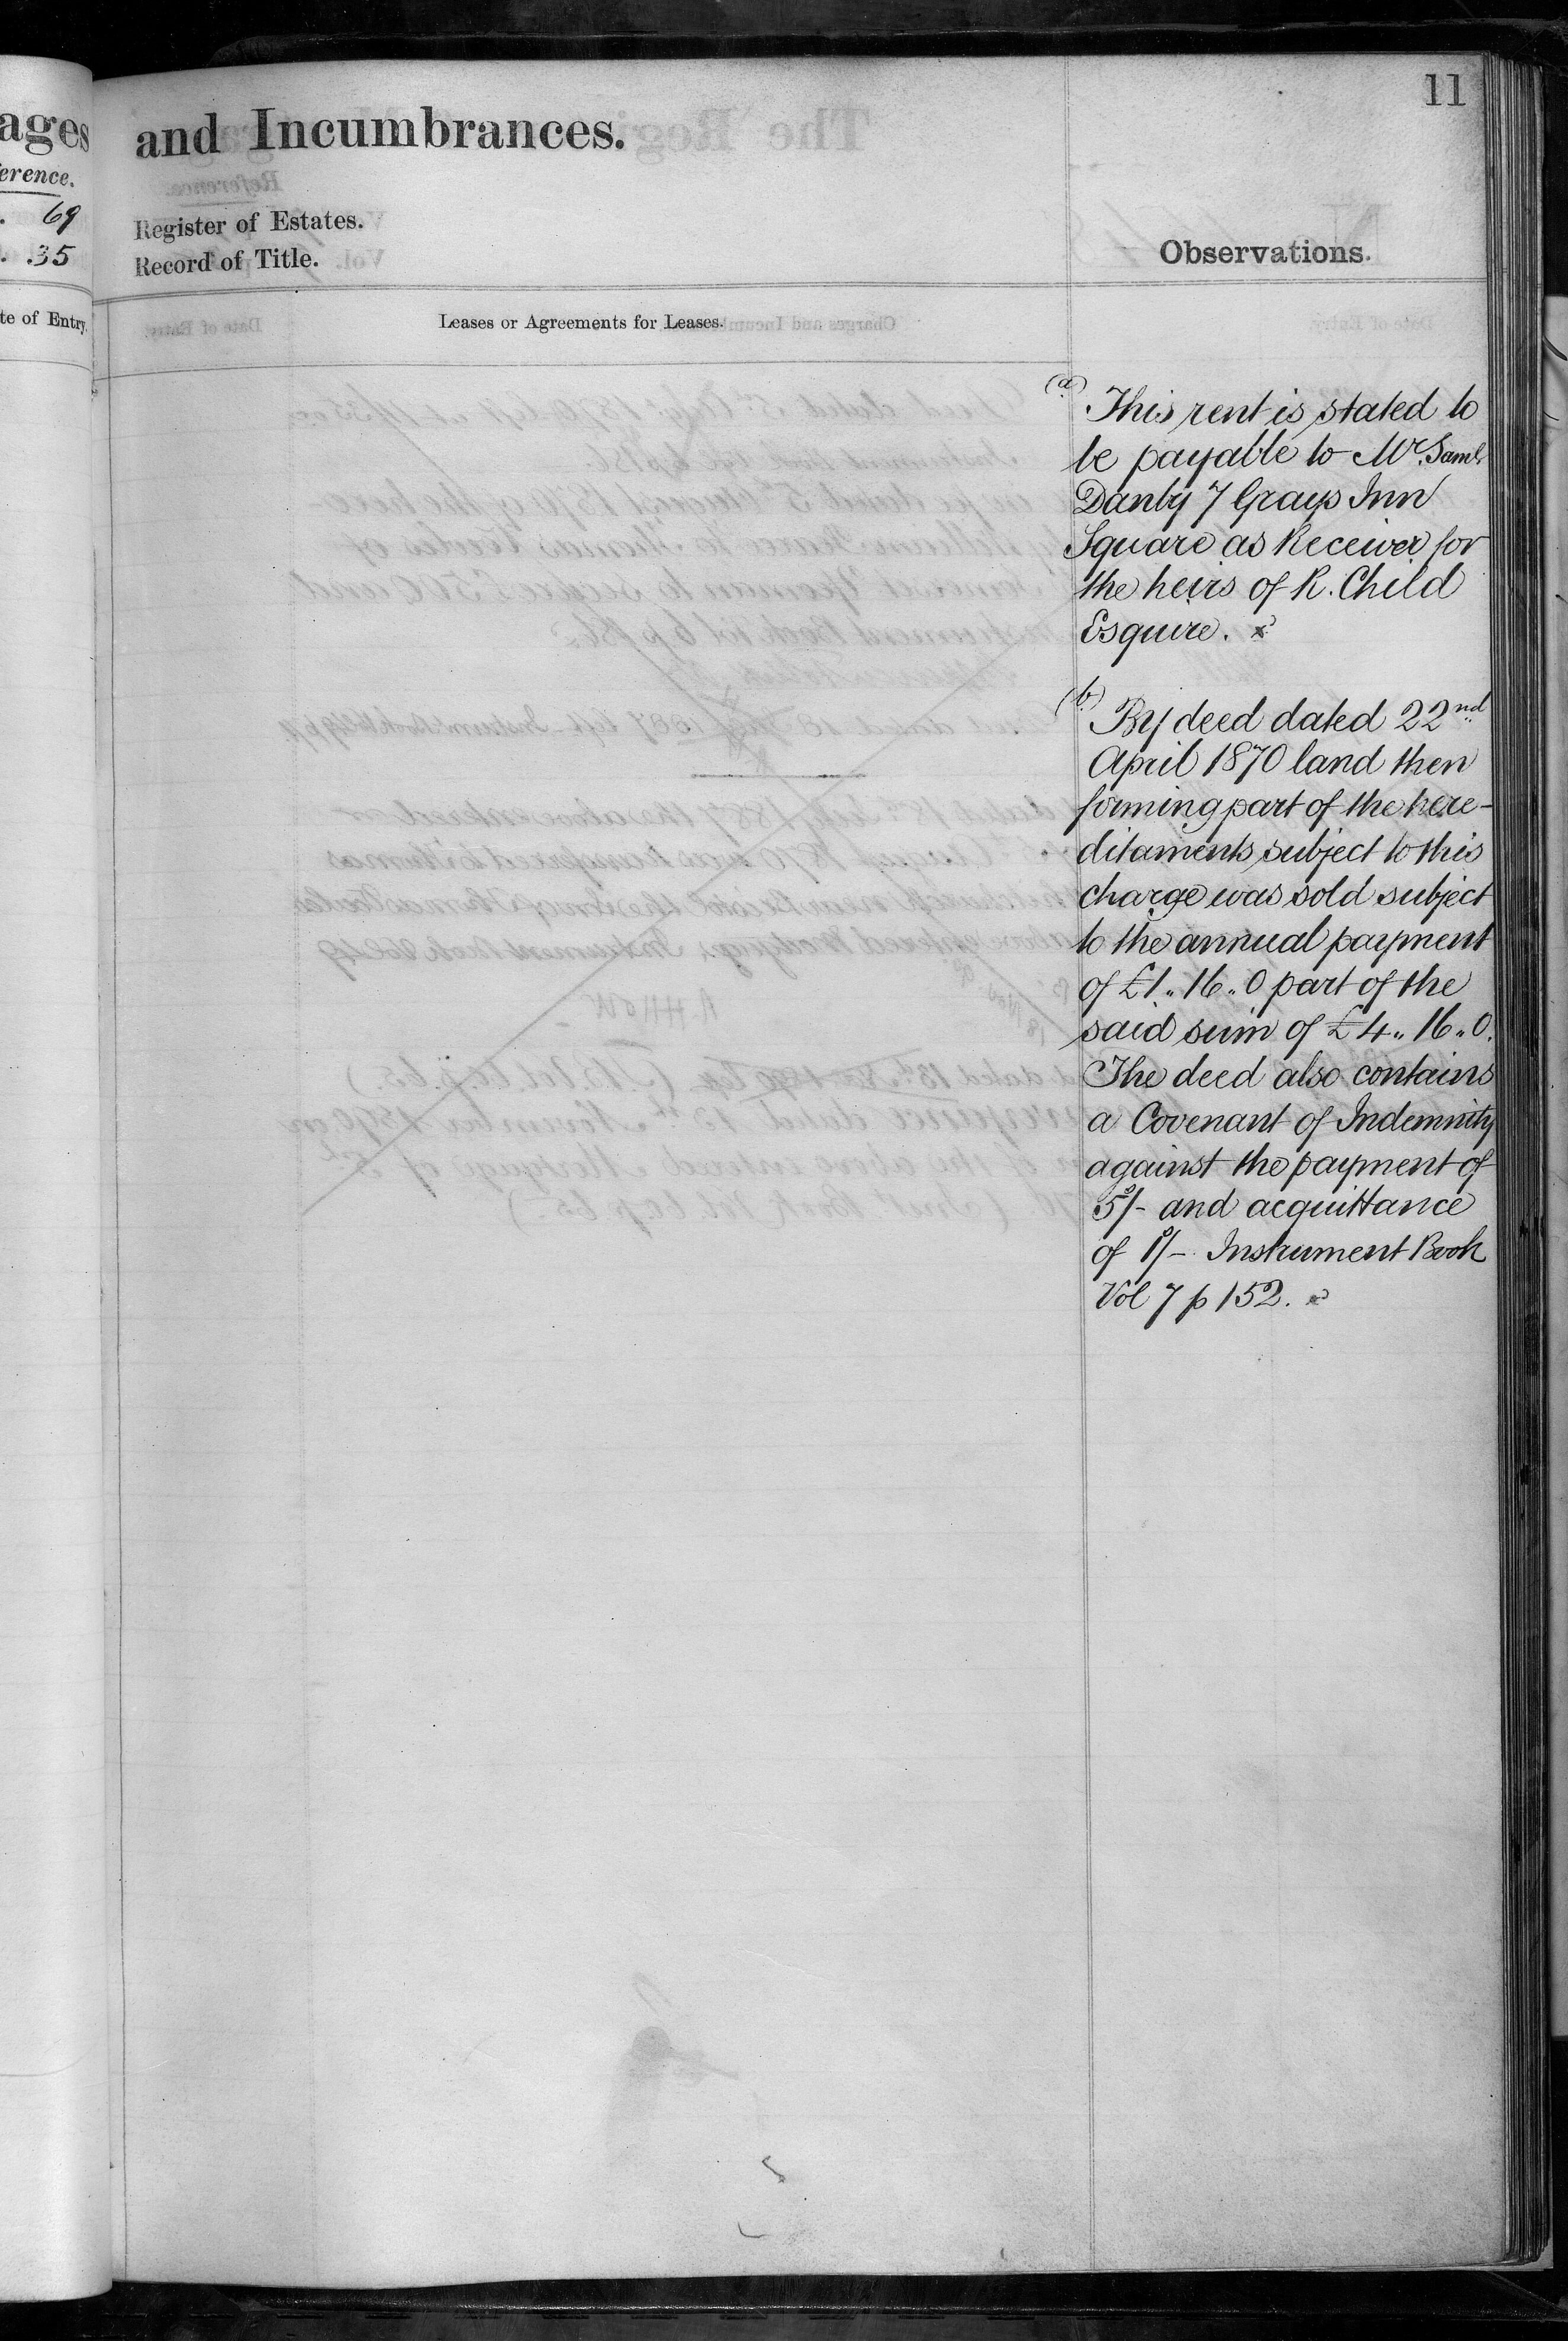 ages
erence.
. 69
. 35
te of Entry.
11
and Incumbrances.
Register of Estates.
Record of Title.
Observations.
Leases or Agreements for Leases.
(a) This rent is stated to
be payable to Mr. Saml.
Danby 7 Grays Inn
Square as Receiver for
the heirs of R. Child
Esquire.
(b) By deed dated 22nd
April 1870 land then
forming part of the here-
ditaments subject to this
charge was sold subject
to the annual payment
of £1.. 16.. 0 part of the
said sum of £4.. 16.. 0.
The deed also contains
a Covenant of Indemnity
against the payment of
5s/- and acquittance
of 1s/- Instrument Book
Vol 7 p 152.